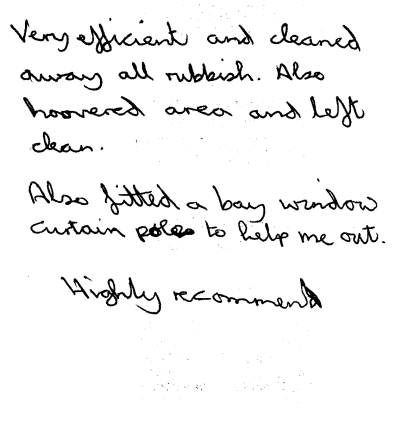 Very efficient and cleaned
away all rubbish. Also
hoovered area and left
clean.
Also fitted a bay window
curtain poles to help me out.
Highly recommend